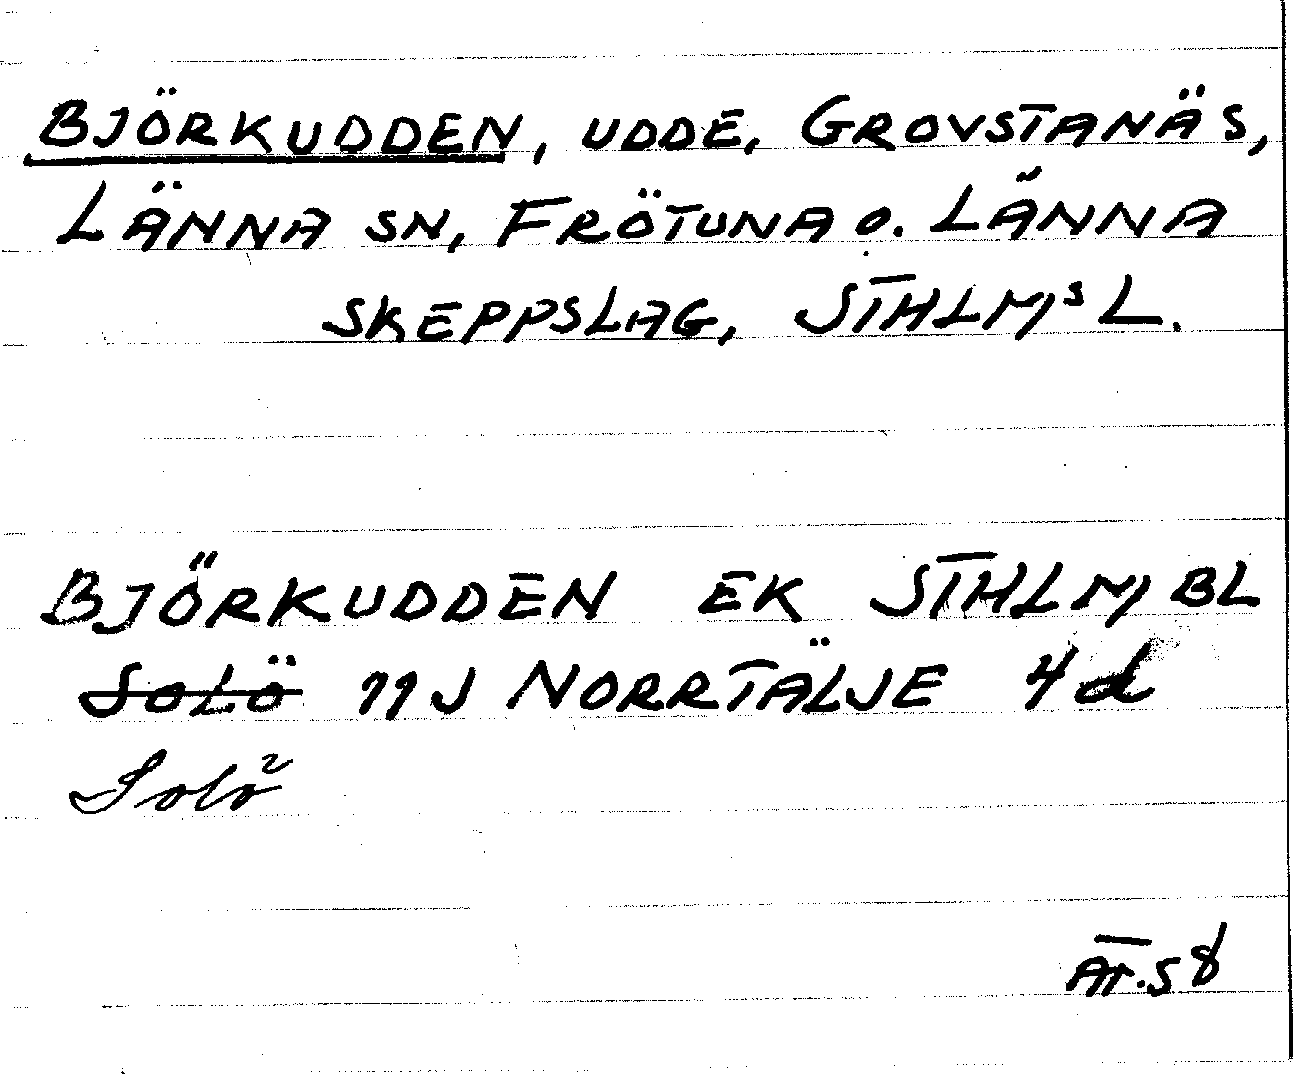 BJÖRKUDDEN, UDDE, GROVSTANÄS,
LÄNNA SN, FRÖTUNA O. LÄNNA
SKEPPSLAG, STHLMS L.
BJÖRKUDDEN EK STHLM BL
SOLÖ 11J NORRTÄLJE 4d
Solö
AT.58